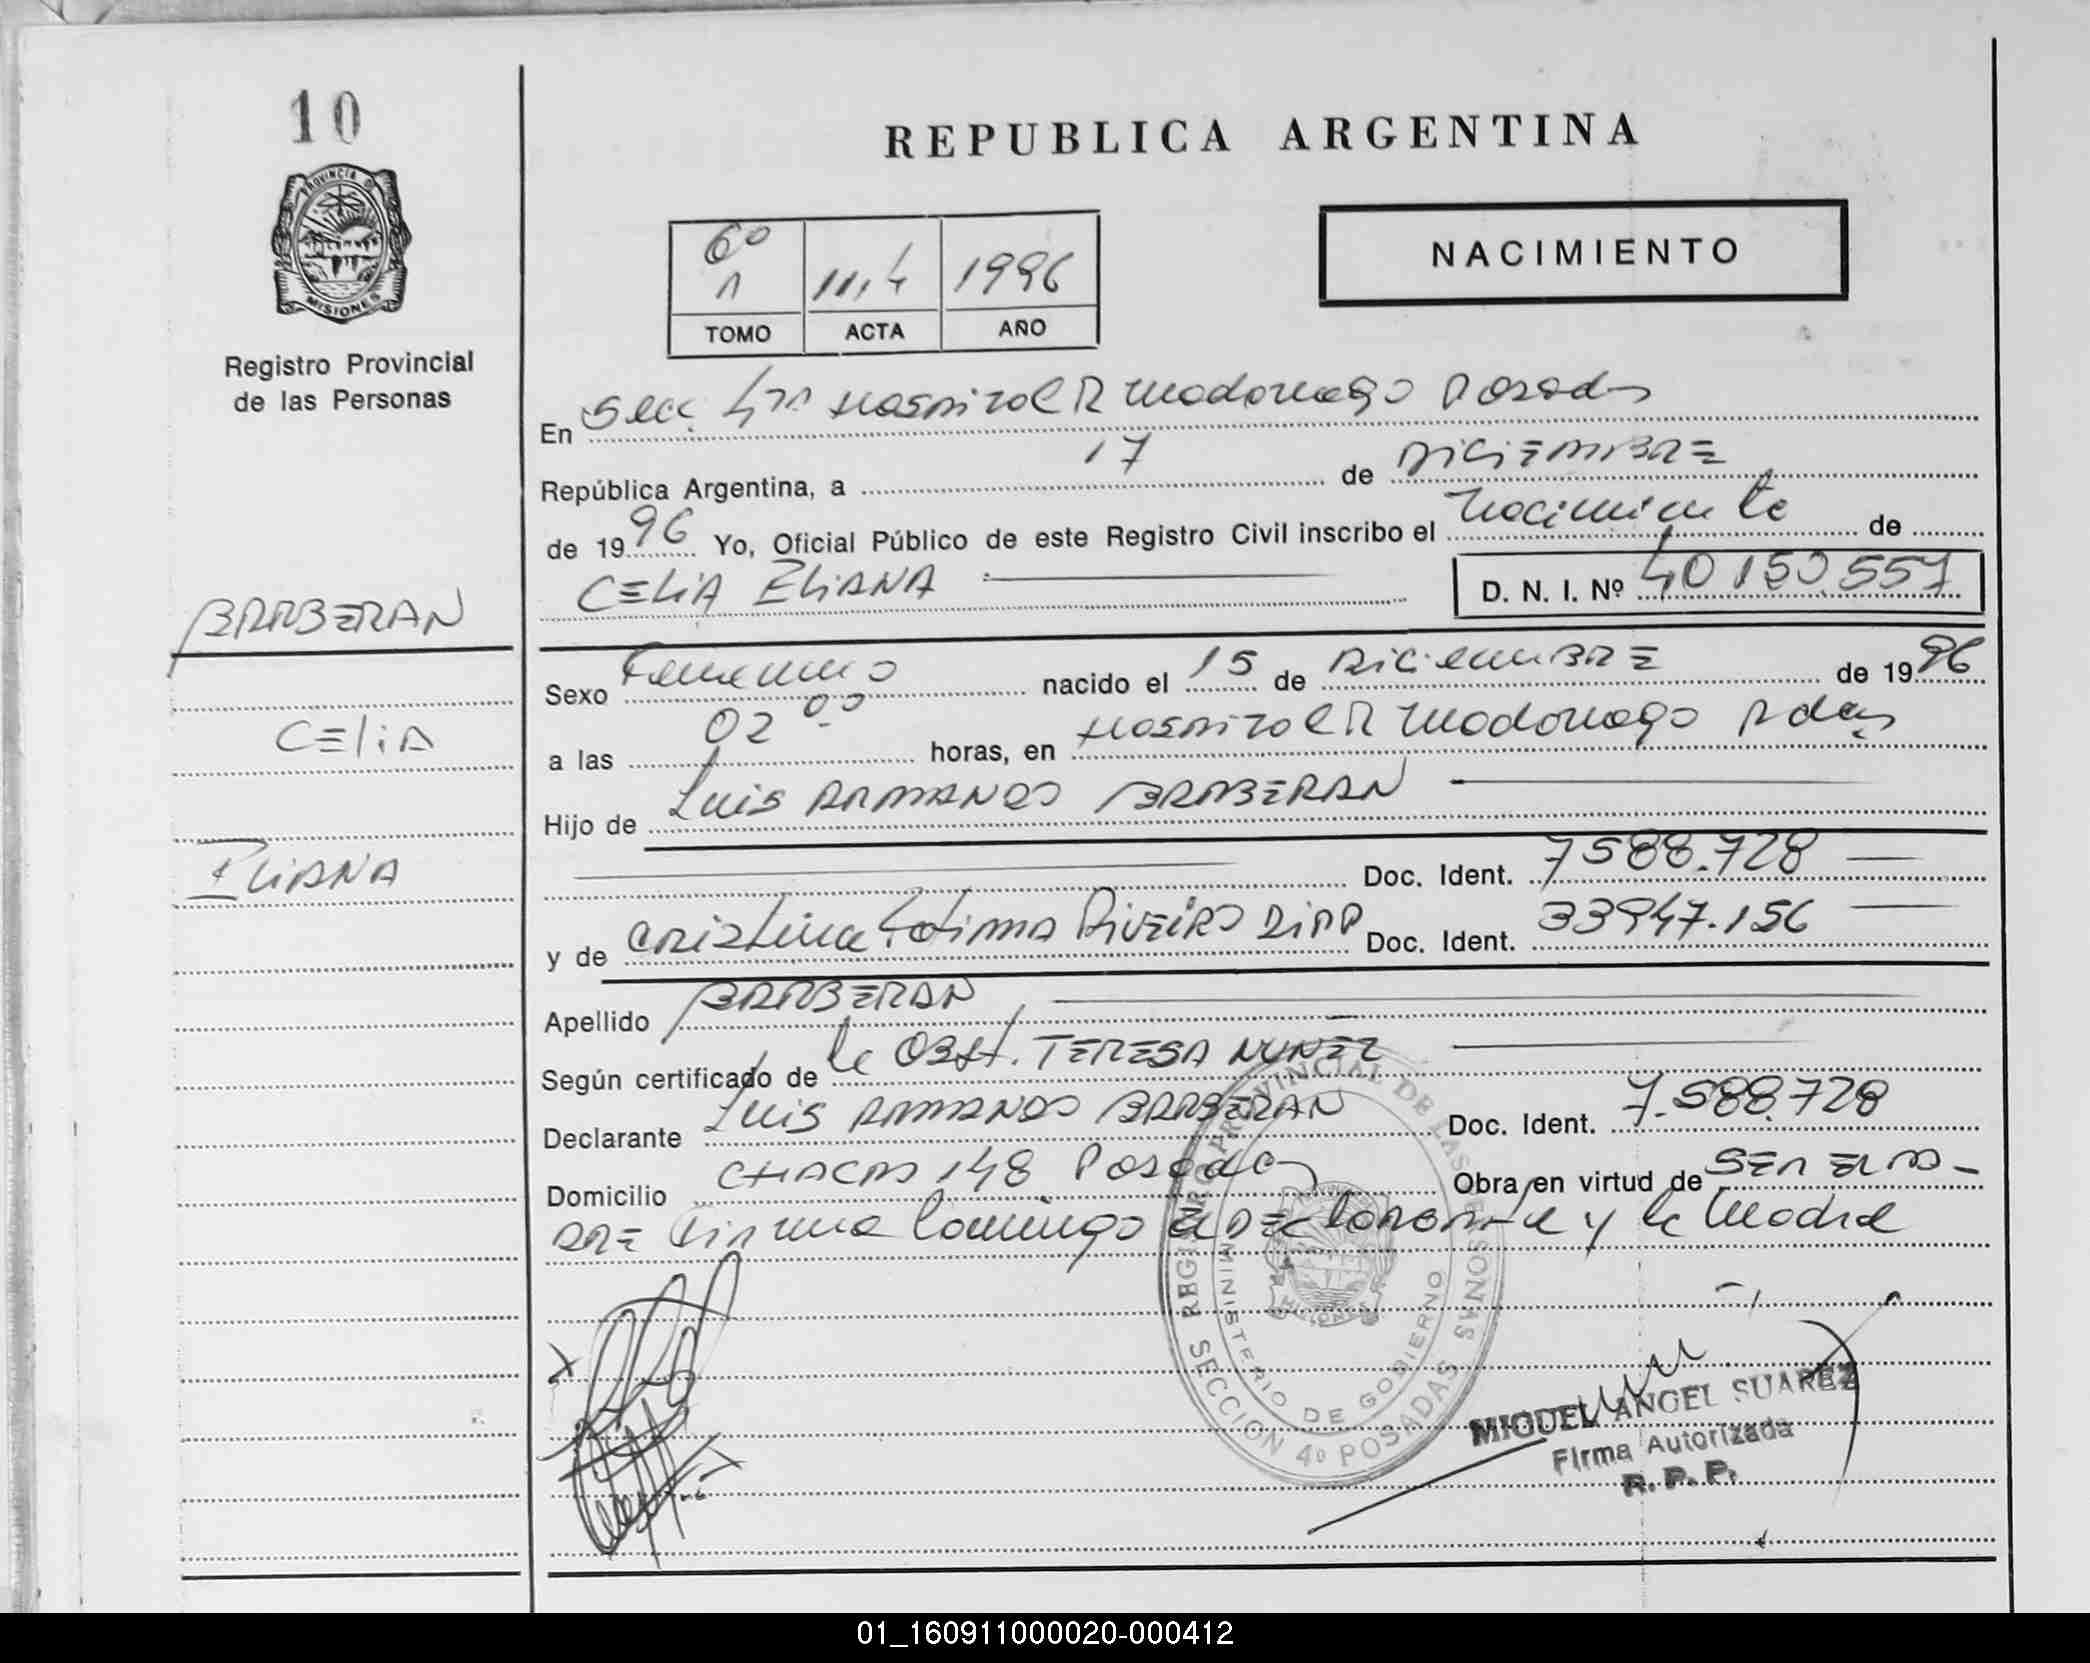 10
REPUBLICA ARGENTINA
PROVINCIA DE MISIONES
Registro Provincial
de las Personas
NACIMIENTO
6º 1996
TOMO ACTA AÑO
En Secc. 4ta Hospital R Madariaga Posadas
República Argentina, a 17 de DICIEMBRE
de 1996 Yo, Oficial Público de este Registro Civil inscribo el Nacimiento de
CELIA ELIANA D. N. I. Nº 40.150.557
BARBERAN
CELIA
ELIANA
Sexo Femenino nacido el 15 de DICIEMBRE de 1996
a las 02 00 horas, en Hospital R Madariaga Pdas
Hijo de Luis ARMANDO BARBERAN
Doc. Ident. 7588.728
y de CRISTINA Fatima RIVEIRO Doc. Ident. 33947.156
Apellido BARBERAN
Según certificado de la OBST. TERESA NUÑEZ
Declarante Luis ARMANDO BARBERAN Doc. Ident. 7.588.728
Domicilio CHACRA 148 Posadas Obra en virtud de SER EL PA-
DRE Firma conmigo el DECLARANTE y la Madre
REGISTRO PROVINCIAL DE LAS PERSONAS
MINISTERIO DE GOBIERNO
SECCION 4º POSADAS
MIGUEL ANGEL SUAREZ
Firma Autorizada
R. P. P.
01_160911000020-000412